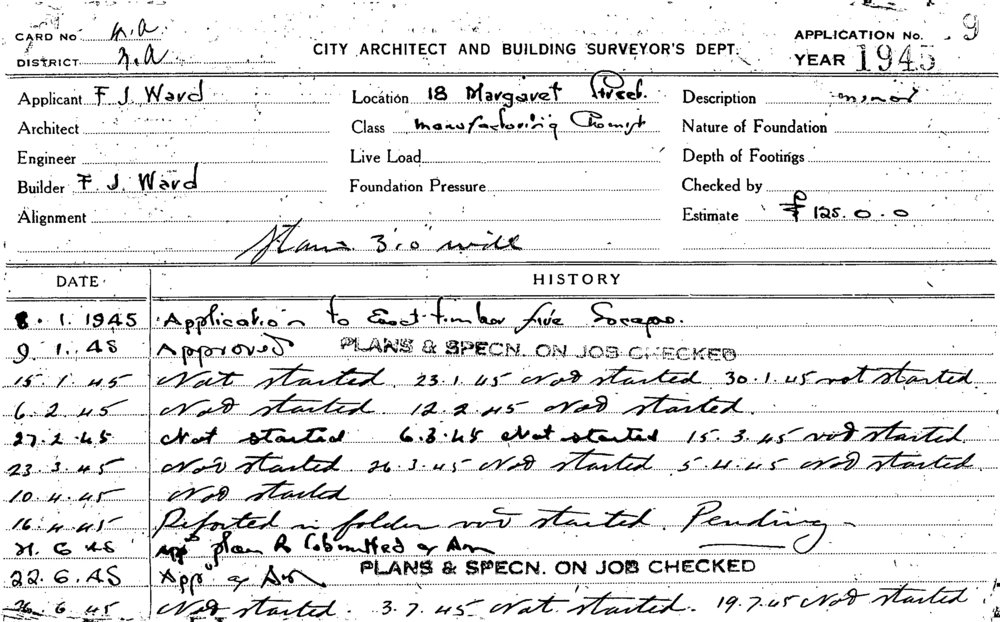 CARD No n.a
DISTRICT n.a
CITY ARCHITECT AND BUILDING SURVEYOR'S DEPT.
APPLICATION No. 9
YEAR 1945
Applicant F J. Ward
Location 18 Margaret Street.
Description minor
Architect
Class Manufacturing Chemist
Nature of Foundation
Engineer
Live Load
Depth of Footings
Builder F. J. Ward
Foundation Pressure
Checked by
Alignment
Estimate £ 125.0.0
Stairs 3'.0" wide
DATE HISTORY
8.1.1945 Application to Erect timber fire Escape.
9.1.45 Approved PLANS & SPECN. ON JOB CHECKED
15.1.45 Not started. 23.1.45 Not started 30.1.45 not started.
6.2.45 Not started. 12.2.45 Not started.
27.2.45 Not started 6.3.45 Not started 15.3.45 not started.
23.3.45 Not started. 26.3.45 Not started 5.4.45 Not started.
10.4.45 Not started
16.4.45 Reported in folder not started. Pending
21.6.45 plan
22.6.45 PLANS & SPECN. ON JOB CHECKED
26.6.45 Not started. 3.7.45 Not started. 19.7.45 Not started